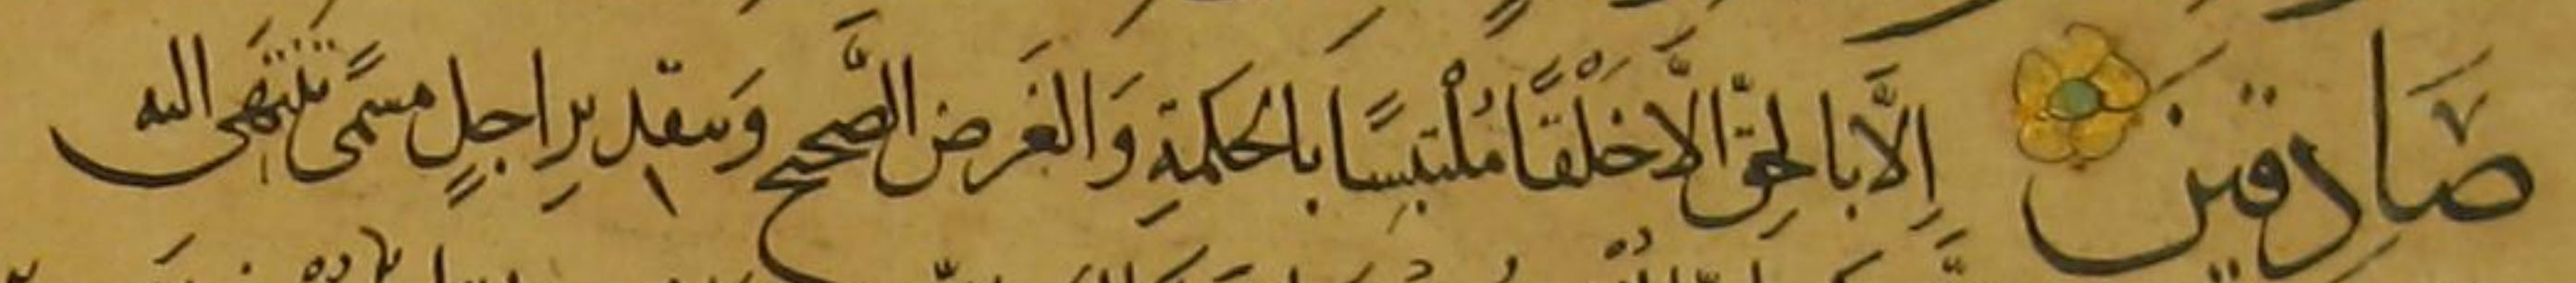 صَادِقِينَ إِلَّا بِالحَقِّ الَّا خَلْقًا مُلْتَبِسًا بِالحكمَةِ وَالغَرَضِ الصَّحيح وَبتقديرِ اجلٍ مسمًى تَنتَهى اليه